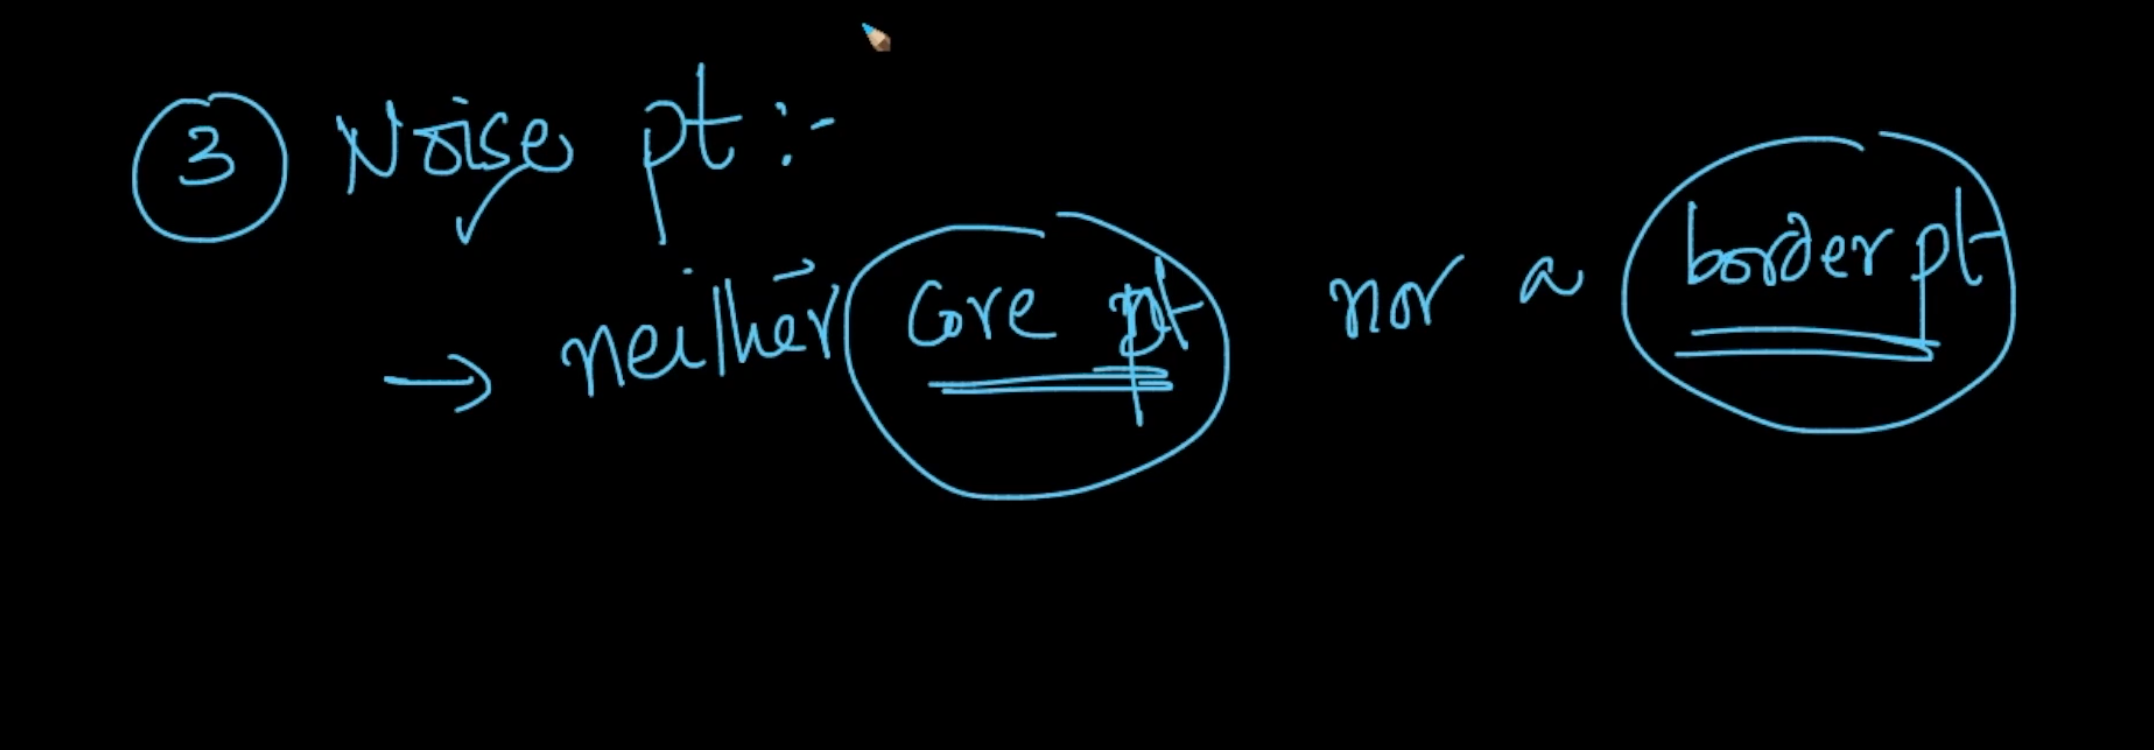 3 Noise pt :-
→ neither core pt nor a border pt